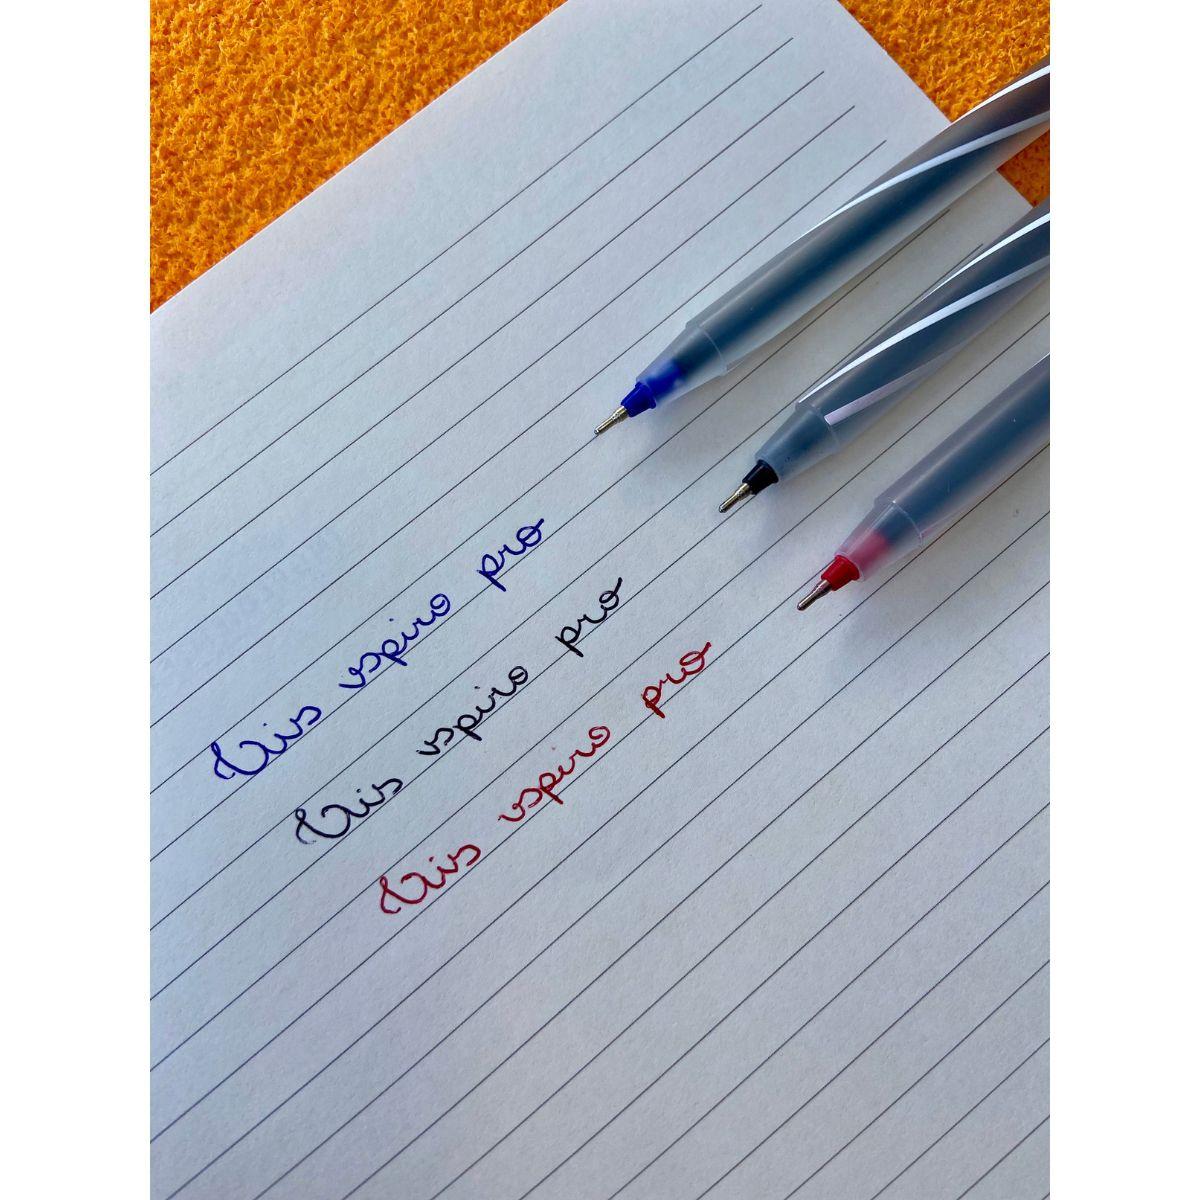 Vis vspiro pro
Vis vspiro pro
Vis vspiro pro